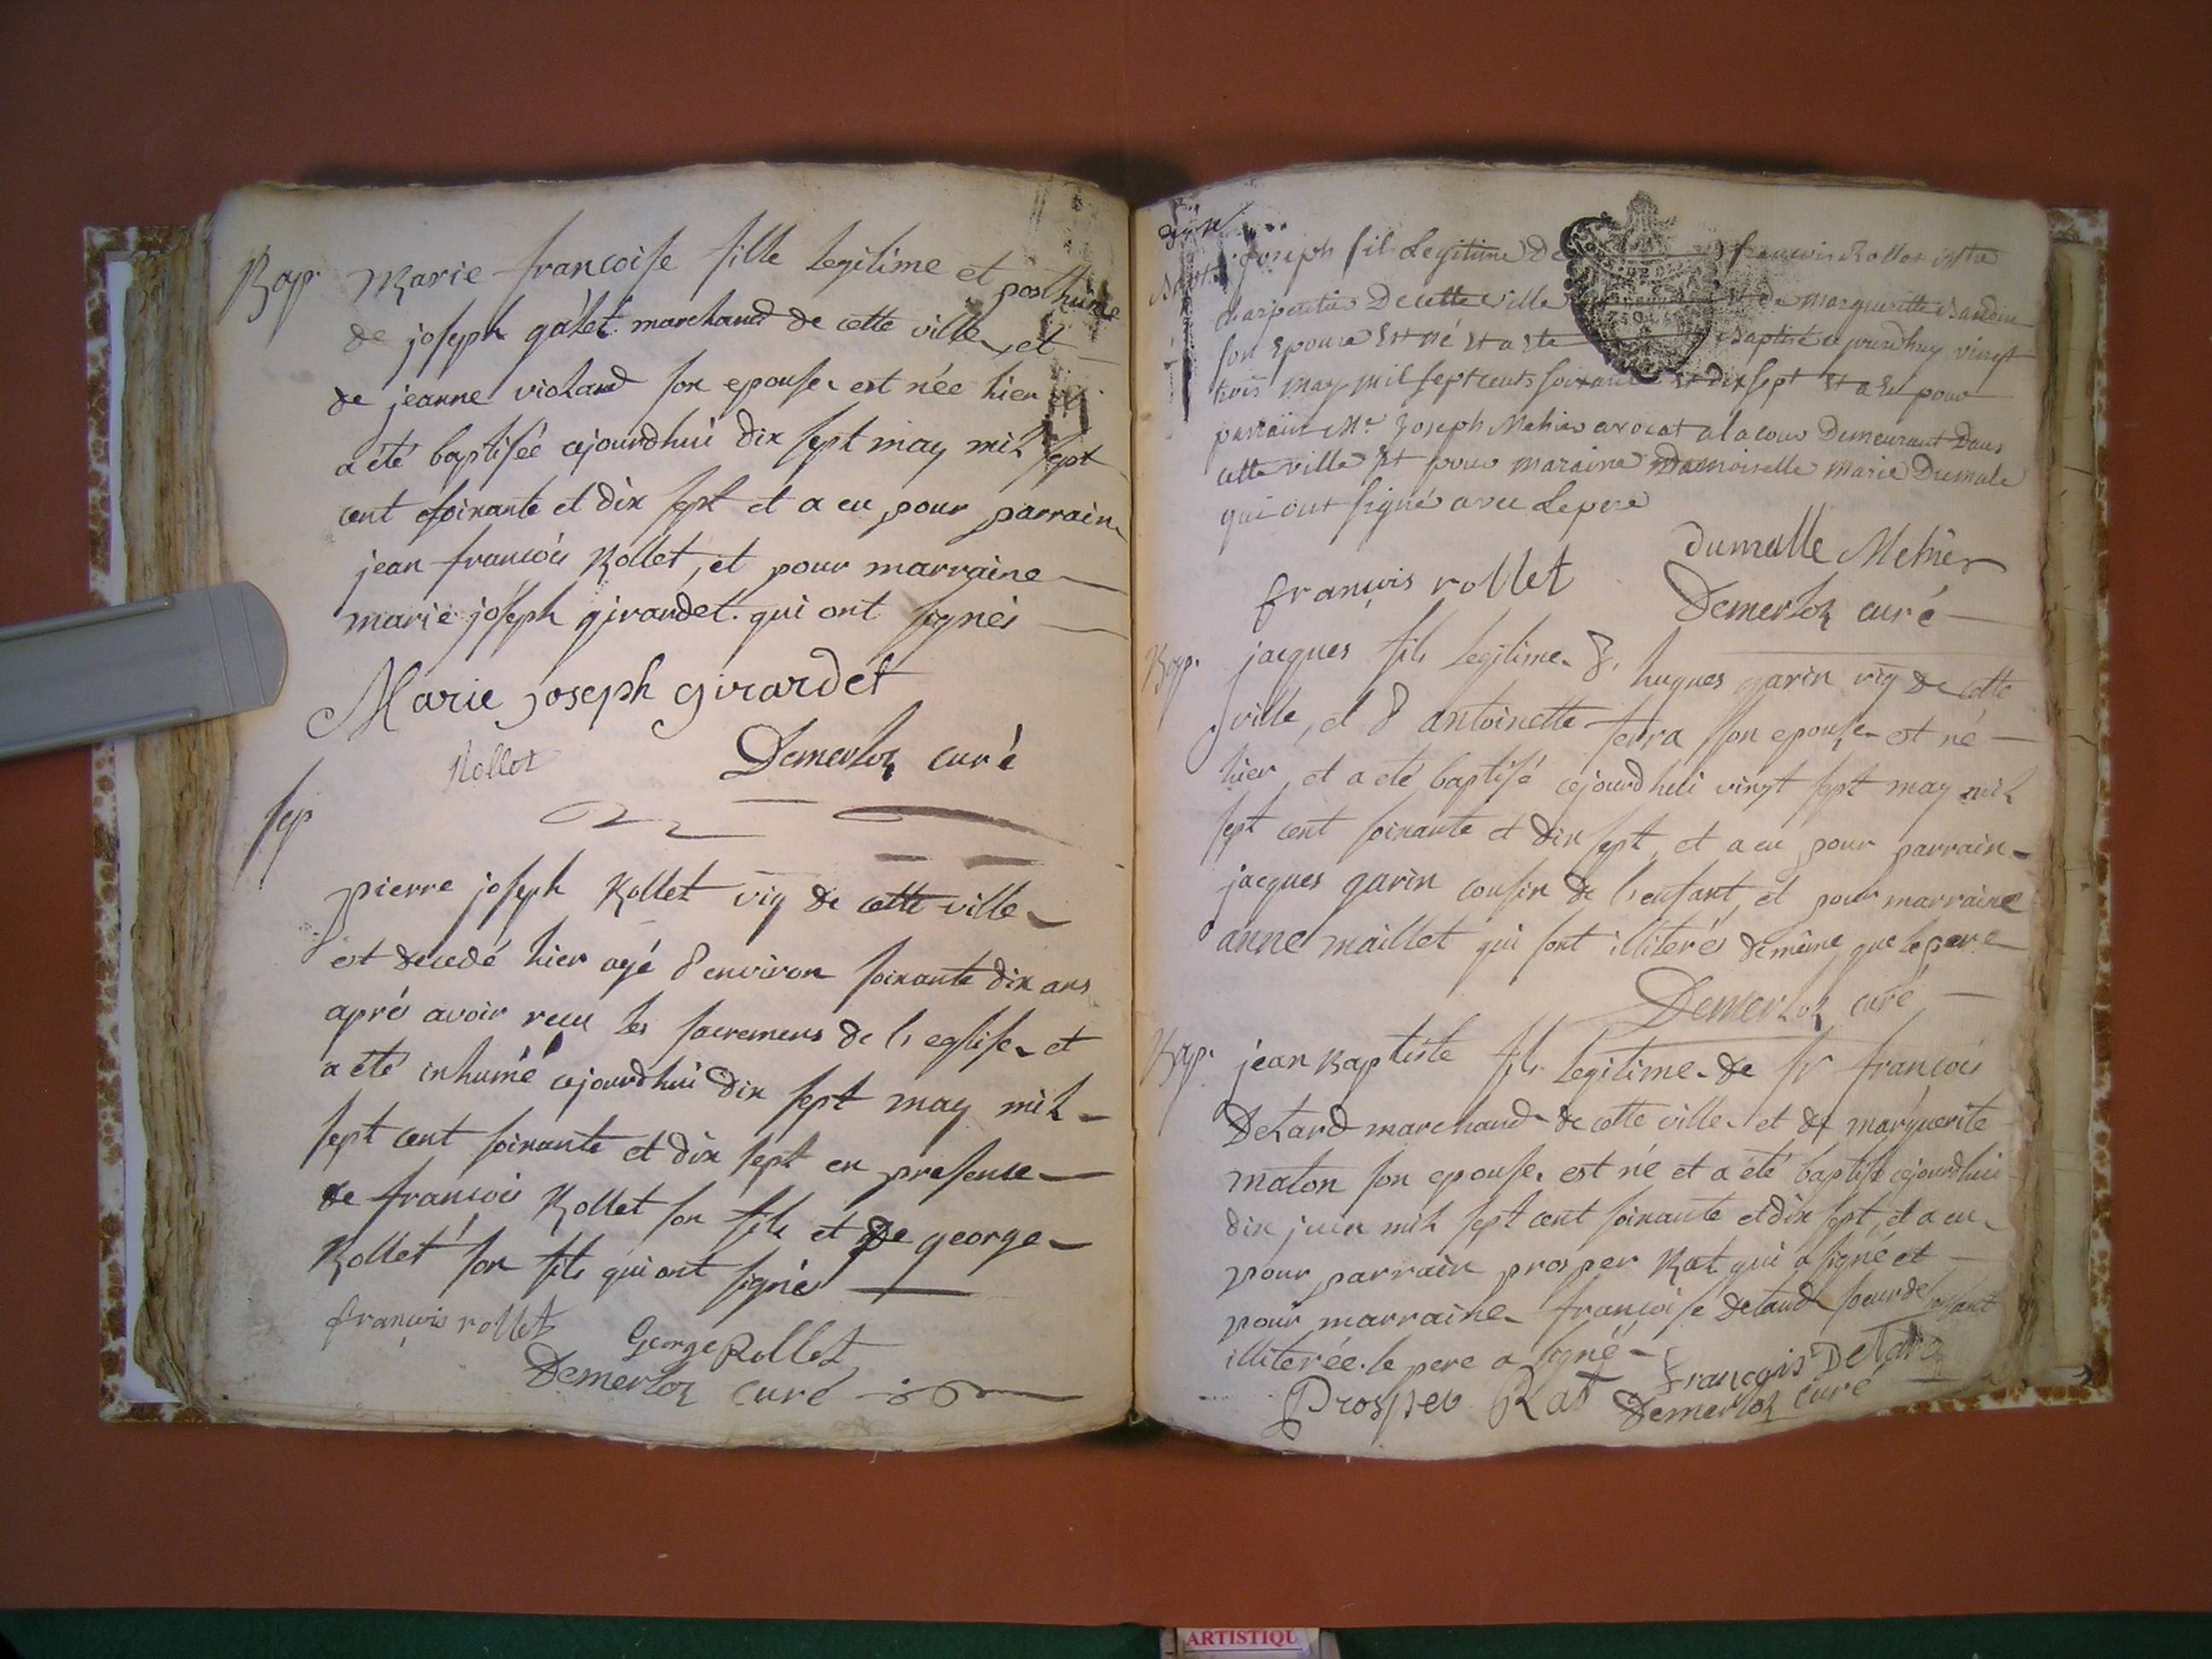 Bap. Marie francoise fille legitime et posthume
de joseph galet marchand de cette ville, et
de jeanne violand son epouse est née hier et
a été baptisée cejourdhui dix sept may mil sept
cent soixante et dix sept et a eu pour parrain
jean francois Rollet, et pour marraine
marie joseph girardet. qui ont signés
Marie joseph girardet
Rollet Demerloz curé
sep
pierre joseph Rollet vig de cette ville
est decedé hier agé d'environ soixante dix ans
aprés avoir recu les sacremens de l'eglise et
a été inhumé cejourdhui dix sept may mil
sept cent soixante et dix sept en presence
de francois Rollet son fils et de george
Rollet son fils qui ont signés
françois rollet George Rollet
Demerloz curé
Joseph fil Legitime De francois Rollet
charpentier De cette ville de margueritte
son Epouse Est né Et a Ete Baptisé ajourdhuy vingt
trois may mil sept cents soixante Et dix sept Et a Eu pour
parrain Mr Joseph Mehier avocat a la cour Demeurant Dans
cette ville Et pour maraine Damoiselle Marie Dumale
qui ont signé avec Le pere
dumalle Mehier
françois rollet Demerloz curé
Bap. jacques fils legitime d' hugues garin vig de cette
ville, et d'antoinette ferra son epouse est né
hier, et a été baptisé cejourdhui vingt sept may mil
sept cent soixante et dix sept, et a eu pour parrain
jacques garin cousin de l'enfant, et pour marraine
anne maillet qui sont illiterés de même que le pere
Demerloz curé
Bap. jean Baptiste fils legitime de sr francois
Delard marchand de cette ville et de marguerite
maton son epouse est né et a été baptisé cejourdhui
dix juin mil sept cent soixante et dix sept, et a eu
pour parrain prosper Rat qui a signé et
pour marraine francoise soeur de l'enfant
illiterée. le pere a signé
françois Delard
Prosper Rat Demerloz curé
ARTISTIQU